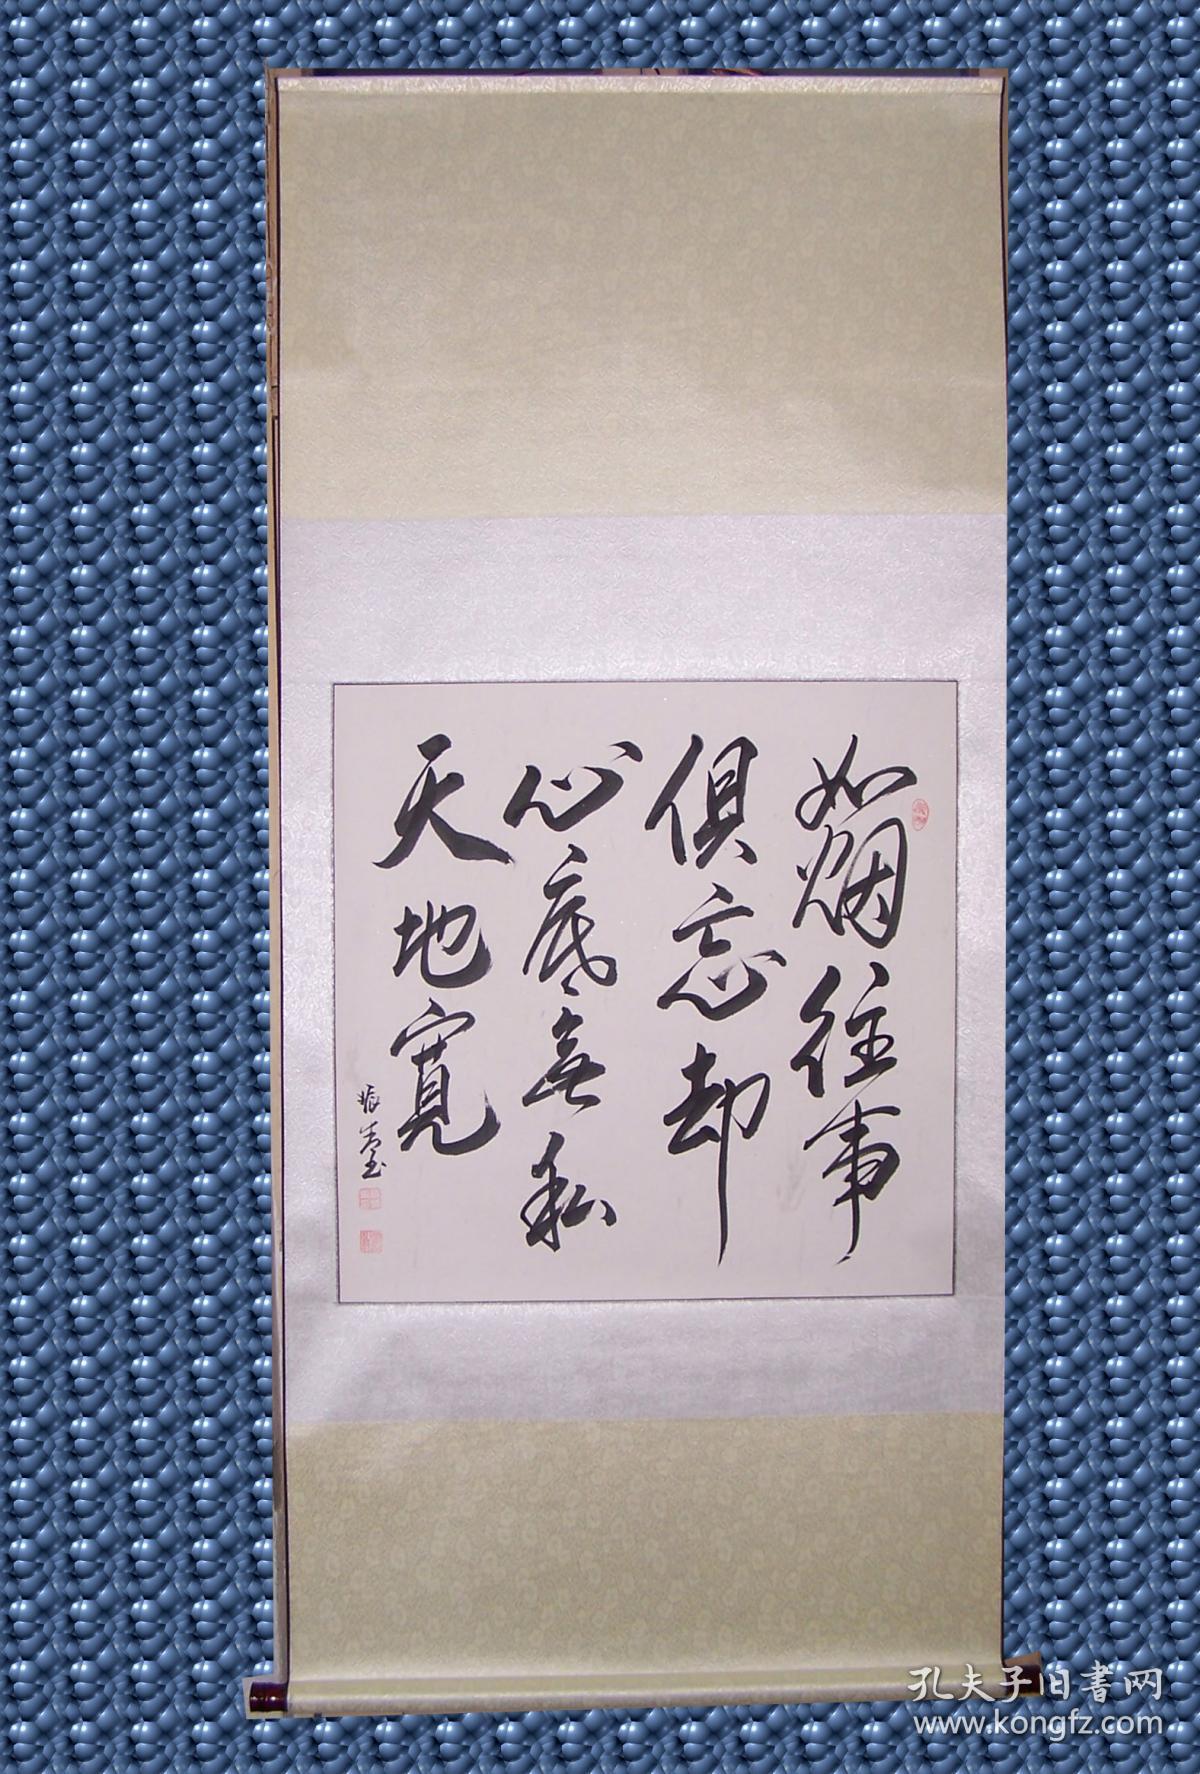 如烟往事
俱忘却
心底無私
天地寬
孔夫子旧書网
www.kongfz.com